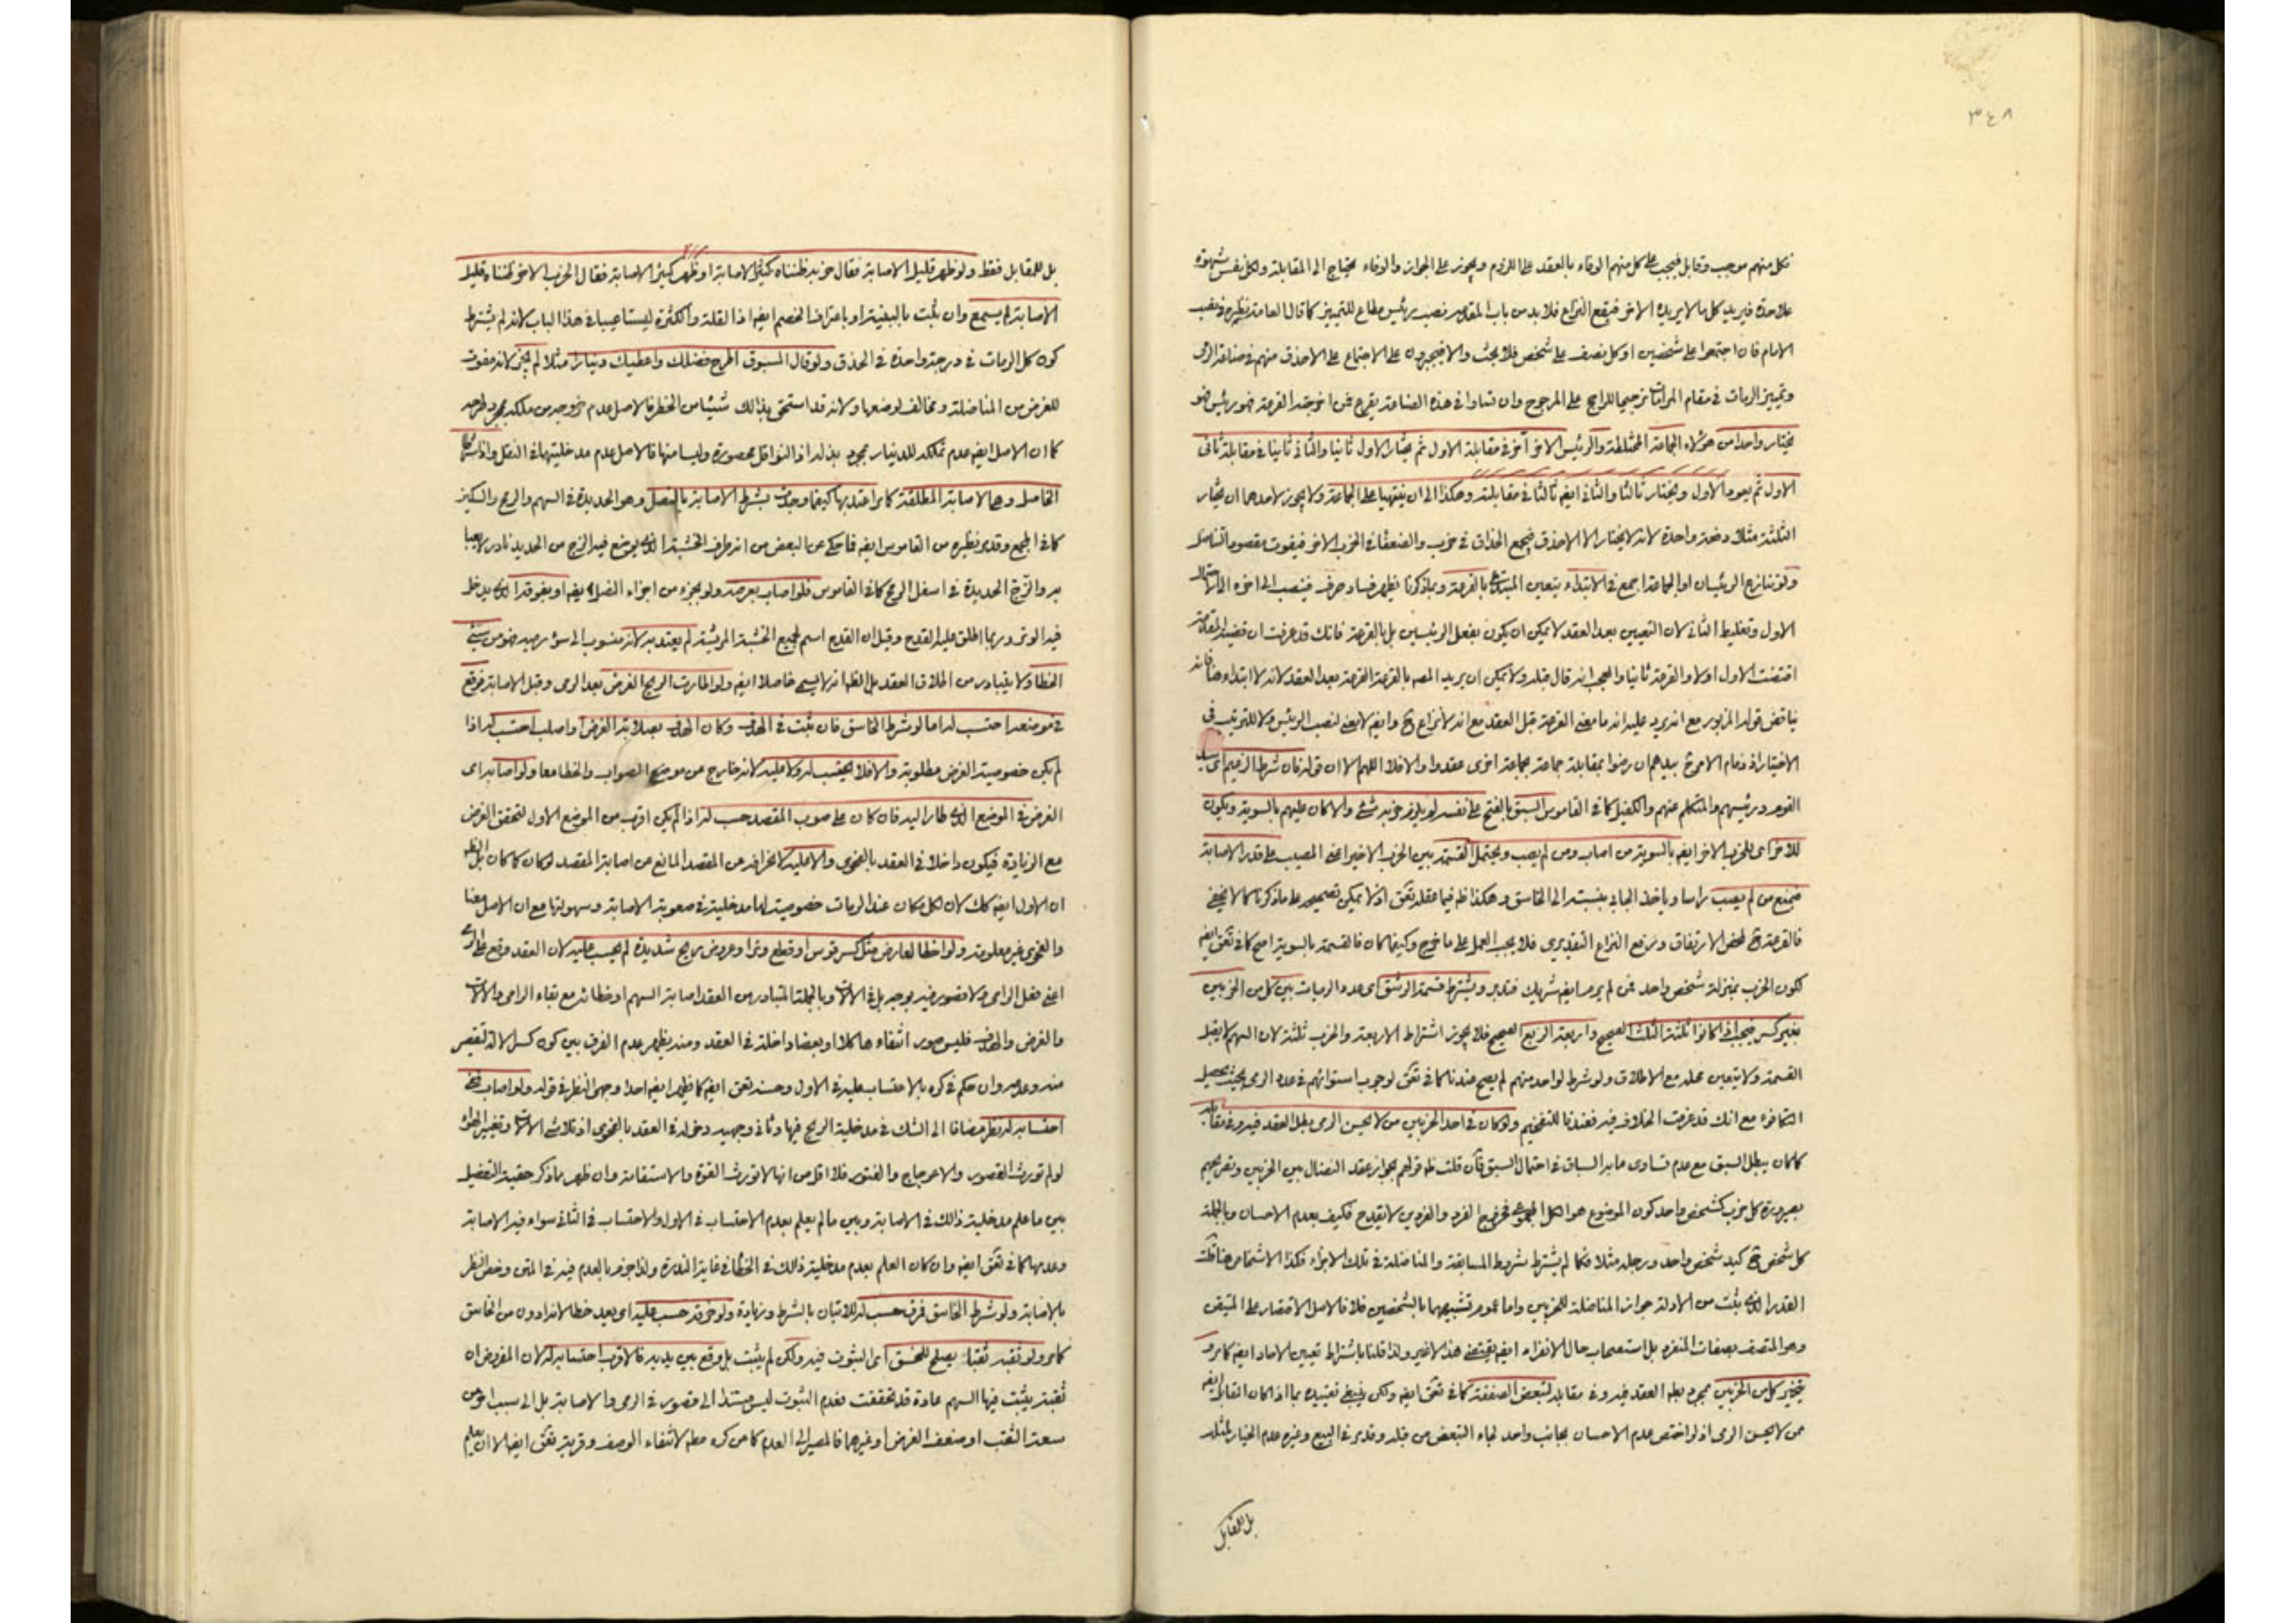 ٣٤٨
فكل منهم موجب وقابل فيجب على كل منهم الوفاء بالعقد على اللزوم ويجوز على الجواز والوفاء يحتاج الى المقابلة ولكل نفس شهوة
علاحدة فيريد كل ما لا يريده الاخر فيقع النزاع فلا بد من باب المقدمه نصب رئيس مطاع للتمييز كما قال العامة نظيره في نصب
الامام فان اجتمعوا على شخصين او كل نصف على شخص فلا بحث والا فيجبرون على الاجتماع على الاحذق منهم في صناعة الرمى
وتمييز الرمات في مقام المراتب ترجيحا للراجح على المرجوح وان تساووا في هذه الصناعة يقرع فمن اخرجته القرعة فهو رئيس فهو
يختار واحدا من هؤلاء الجماعة المختلطة والرئيس الاخر آخر في مقابلة الاول ثم يختار الاول ثانيا والثانى ثانيا في مقابلة ثانى
الاول ثم يعود الاول ويختار ثالثا والثانى ايضا ثالثا في مقابلته وهكذا الى ان ينتهيا على الجماعة ولا يجوز لاحدهما ان يختار
الثلثة مثلا دفعة واحدة لانه لا يختار الا الاحذق فيجمع الحذاق في حزب والضعفاء في الحزب الاخر فيفوت مقصود التناضل
ولو تنازع الرئيسان او الجماعة اجمع في الابتداء يتعين المبتدئ بالقرعة وبما ذكرنا يظهر فساد حرف فينصب الى اخره
الاول وتغليط الثانى لان التعيين بعد العقد لا يمكن ان يكون بفعل الرئيسين بل بالقرعة فانك قد عرفت ان قضية المقدمة
اقتضت الاول اولا والقرعة ثانيا والعجب انه قال قبله ولا يمكن ان يريد المصه بالقرعة القرعة بعد العقد لانه لا ابتداء هنا فانه
يناقض قوله المزبور مع انه يرد عليه انه ما معنى القرعة قبل العقد مع انه لا نزاع ح وايضا لا معنى لنصب الرئيس ولا للترتيب في
الاختيار اذ زمام الامر ح بيدهم ان رضوا بمقابلة جماعة بجماعة اخرى عقدوا والا فلا اللهم الا ان قوله فان شرط الزعيم اى سيد
القوم ورئيسهم والمتكلم عنهم والكفيل كما في القاموس السبق بالفتح على نفسه لم يلزم حزبه شئ والا كان عليهم بالسوية ويكون
للاخر اى للحزب الاخر ايضا بالسوية من اصاب ومن لم يصب ويحتمل القسمة بين الحزب الاخير اعنى المصيب على قدر الاصابة
فيمنع من لم يصب راسا وياخذ الجابى بنسبته الى الخاسق وهكذا
فالقرعة ح لمحض الارتفاق ورفع النزاع التقديرى فلا يجب العمل على ما خرج وكيفما كان فالقسمة بالسوية اصح كما في ايضا
لكون الحزب بمنزلة شخص واحد فمن لم يرم ايضا شريك فتدبر ويشترط قسمة الرشق اى عدد الرميات بين كل من الحزبين
بغير كسر فيجب ان كانوا ثلثة الثلث الصحيح واربعة الربع الصحيح فلا يجوز اشتراط الاربعة والحزب ثلثة لان السهم لا يقبل
القسمة ولا يتعين محله مع الاطلاق ولو شرط لواحد منهم لم يصح عندنا كما في لوجوب استوائهم في عدد الرمى بحيث يحصل
التكافؤ مع انك قد عرفت الخلاف فيه فعندنا للتفخيم ولو كان في احد الحزبين من لا يحسن الرمى بطل العقد فيه وفي مقابله
كما كان يبطل السبق مع عدم تساوى ما به السباق في احتمال السبق فان قلت ظ قولهم بجواز عقد النضال بين الحزبين وتصريحهم
بصيرورة كل حزب كشخص واحد كون الموضوع هو الكل المجموعى فخروج الفرد والفردين لا يقدح فكيف بعدم الاحسان وبالجملة
كل شخص ح كيد شخص واحد ورجله مثلا فكما لم يشترط شروط المسابقة والمناضلة في تلك الاجزاء فكذا الاشخاص هنا قلت
القدر الذى يثبت من الادلة جواز المناضلة للحزبين واما عموم تشبيههما بالشخصين فلا فالاصل الاقتصار على المتيقن
وهو المتصف بصفات المنفرد بل استصحاب حال الانفراد ايضا يقتضى هذا الاخير ولذا قلنا باشتراط تعيين الاحاد ايضا كما مر و
يتخير كل من الحزبين بمجرد بطلان العقد فيه وفي مقابله لتبعض الصفقة كما في ايضا ولكن ينبغى تقييده بما اذا كان المقابل ايضا
ممن لا يحسن الرمى اذ لو اختص عدم الاحسان بجانب واحد لجاء التبعض من قبله وقد مر في البيع وغيره عدم الخيار لمثله
بل للمقابل
بل للمقابل فقط ولو ظهر قليل الاصابة فقال حزبه ظنناه كثير الاصابة او ظهر كثير الاصابة فقال الحزب الاخر ظنناه قليل
الاصابة لم يسمع وان ثبت بالبينة او باعتراف الخصم ايضا اذ القلة والكثرة ليستا عيبا في هذا الباب لانه لم يشترط
كون كل الرمات في درجة واحدة في الحذق ولو قال المسبوق اطرح فضلك واعطيك دينارا مثلا لم يجز لانه مفوت
للغرض من المناضلة ومخالف لوضعها ولانه قد استحق بذلك شيئا من الخطر فالاصل عدم خروجه من ملكه بمجرد طرحه
كما ان الاصل ايضا عدم تملكه للدينار بمجرد بذله اذ النواقل محصورة وليسا منها فالاصل عدم مدخليتهما في النقل واذا شرطا
الخاصل وهو الاصابة المطلقة كما مر اعتد بها كيفما وجدت بشرط الاصابة بالنصل وهو الحديدة في السهم والرمح والسكين
كما في المجمع وقد مر نظيره من القاموس ايضا فما حكى عن البعض من انه طرف الخشبة الذى يوضع فيه الزج من الحديد نادر لا يعبأ
به والزج الحديدة في اسفل الرمح كما في القاموس فلو اصاب بعرضه ولو بجزء من اجزاء النصل ايضا او بفوقه الذى يدخل
فيه الوتر وربما اطلق عليه القدح وقيل ان القدح اسم لجميع الخشبة المريشة لم يعتد به لانه منسوب الى سوء رميه فهو من سيئ
الخطا ولا يتبادر من اطلاق العقد بل الظ انه لا يسمى خاصلا ايضا ولو اطارت الريح الغرض بعد الرمى وقبل الاصابة فوقع
في موضعه احتسب له اما لو شرط الخاسق فان ثبت في الهدف وكان الهدف بصلابة الغرض او اصلب احتسب له اذا
لم يكن خصوصية الغرض مطلوبة والا فلا يحتسب له ولا عليه لانه خارج عن موضع الصواب والخطا معا ولو اصابه اى
الغرض في الموضع الذى طار اليه فان كان على صوب المقصد حسب له اذا لم يكن اقرب من الموضع الاول لتحقق الغرض
مع الزيادة فيكون داخلا في العقد بالفحوى والا عليه لانحرافه عن المقصد المانع من اصابة المقصد لو كان كما كان بل الظ
ان الاول ايضا كك لان لكل مكان عند الرمات خصوصية لها مدخلية في صعوبة الاصابة وسهولتها مع ان الاصل معنا
والفحوى غير معلومة ولو اخطا لعارض مثل كسر قوس او قطع وتر او عروض ريح شديدة لم يحسب عليه لان العقد وقع على الرمى
اعنى فعل الرامى ولا قصور فيه بوجه بل في الالات وبالجملة المتبادر من العقد اصابة السهم او خطائه مع بقاء الرامى والالات
والغرض والهدف فليس صور انتفاء ها كلا او بعضا داخلة في العقد ومنه يظهر عدم الفرق بين كون كسر الالة لتقصير
منه وعدمه وان حكم في كره بالاحتساب عليه في الاول وحسنه ايضا كما ظهر ايضا احد وجهى النظر في قوله ولو اصاب ففى
احتسابه له نظر مضافا الى الشك في مدخلية الريح فيها وثانى وجهيه دخوله في العقد بالفحوى اذ تلاشى الالات وتغيير الهواء
لو لم تورث القصور والاعوجاج والفتور فلا اقل من انها لا تورث القوة والاستقامة وان ظهر مما ذكر حقية التفصيل
بين ما علم مدخلية ذلك في الاصابة وبين ما لم يعلم بعدم الاحتساب في الاول والاحتساب في الثانى سواء فيه الاصابة
وعدمها كما في ايضا وان كان العلم بعدم مدخلية ذلك في الخطا في غاية الندرة ولذا جزم بالعدم فيه في المتن وخص النظر
بالاصابة ولو شرط الخاسق فمرق حسب له للاتيان بالشرط وزيادة ولو خرقه حسب عليه اى يعد خطا لانه ادون من الخاسق
كما مر ولو ثقبه ثقبا يصلح للخسق اى الثبوت فيه ولكن لم يثبت بل وقع بين يديه فالاقرب احتسابه له لان المفروض ان
ثقبته يثبت فيها السهم عادة قد تحققت فعدم الثبوت ليس مستندا الى قصور في الرمى والاصابة بل الى سبب اخر من
سعة الثقب او ضعف الغرض او غيرهما فالمصير الى العدم كما من كره مط لانتفاء الوصف وقربه ايضا الا ان يعلم